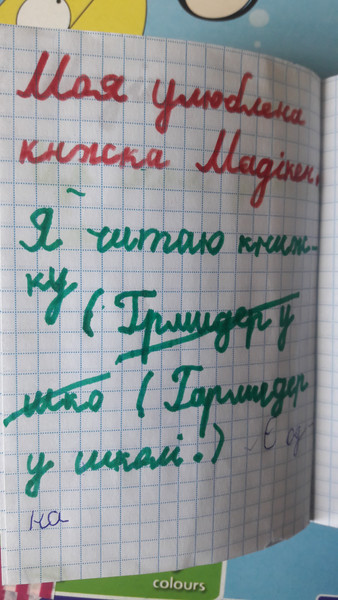 Моя улюблена
книжка Мадікен.
Я читаю книж-
ку (Грмидер у
шко (Гармидер
у школі.) Є од-
на
colours